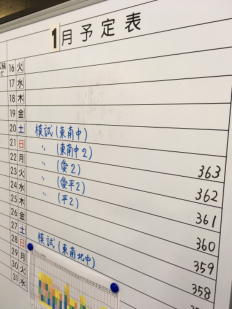 1月予定表
16 火
17 水
18 木
19 金
20 土 模試(東南中)
21 日 〃 (東南中2)
22 月 〃 (2) 363
23 火 〃 (平2) 362
24 水 〃 (平2) 361
25 木 360
26 金 359
27 土 模試(東南北中) 358
28 日
29 月
30 火
31 水